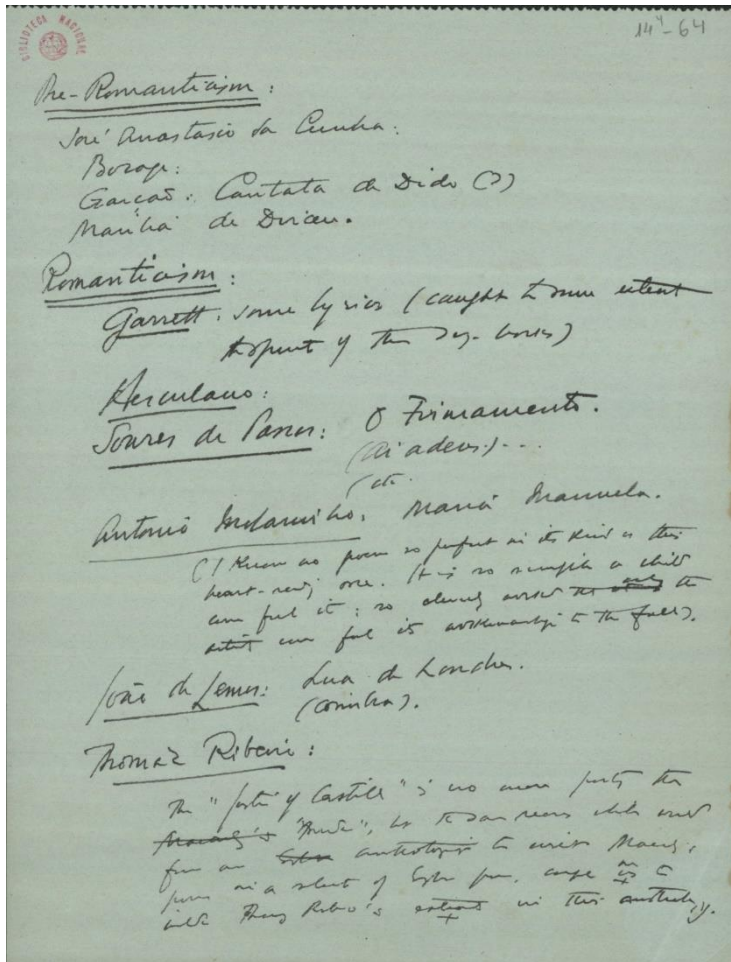 BIBLIOTECA NACIONAL
14⁴-64
Pre-Romanticism:
José Anastasio da Cunha:
Bocage:
Garcão: Cantata de Dido (?)
Marilia de Dirceu.
Romanticism:
Garrett: some lyrics (caught to some extent
the spirit of the)
Herculano:
Soares de Passos: O Firmamento.
(Ai adeus!)...
(etc.
Antonio: Maria Manuela.
(I know no poem so perfect in its kind as this
heart-rending one. It is so simple a child
can feel it; so cleverly worked the
artist can feel its workmanship to the full).
João de Lemos: Lua de Londres.
(Coimbra).
Thomaz Ribeiro:
The "of Castille" is no more poetry than
for an anthologist to
poem in a of as to
Ribeiro's extract in this anthology.